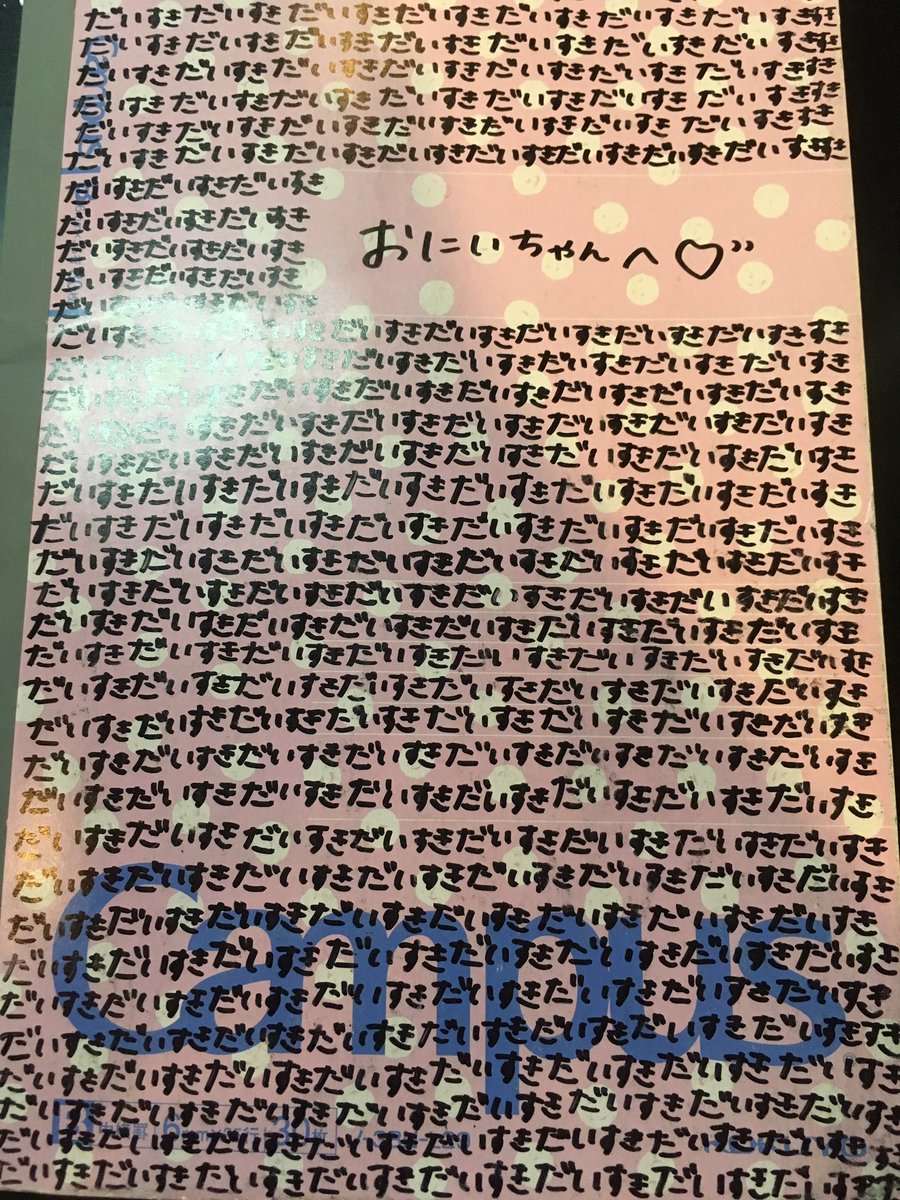 だいすきだいすきだいすきだいすきだいすきだいすきだいすきすき
だいすきだいすきだいすきだいすきだいすきだいすきだいすきすき
だいすきだいすきだいすきだいすきだいすきだいすきだいすきすき
だいすきだいすきだいすきだいすきだいすきだいすきだいすきすき
だいすきだいすきだいすきだいすきだいすきだいすきだいすきすき
だいすきだいすきだいすきだいすきだいすきだいすきだいすきだいすきすき
だいすきだいすきだいすき
だいすきだいすきだいすき
おにいちゃんへ♡
だいすきだいすきだいすき
だいすきだいすきだいすき
だいすきだいすきだいすき
だいすきだいすきだいすきだいすきだいすきだいすきだいすきだいすき
だいすきだいすきだいすきだいすきだいすきだいすきだいすきだいすき
だいすきだいすきだいすきだいすきだいすきだいすきだいすきだいすき
だいすきだいすきだいすきだいすきだいすきだいすきだいすきだいすき
だいすきだいすきだいすきだいすきだいすきだいすきだいすきだいすき
だいすきだいすきだいすきだいすきだいすきだいすきだいすきだいすき
だいすきだいすきだいすきだいすきだいすきだいすきだいすきだいすき
だいすきだいすきだいすきだいすきだいすきだいすきだいすきだいすき
だいすきだいすきだいすきだいすきだいすきだいすきだいすきだいすき
だいすきだいすきだいすきだいすきだいすきだいすきだいすきだいすき
だいすきだいすきだいすきだいすきだいすきだいすきだいすきだいすき
だいすきだいすきだいすきだいすきだいすきだいすきだいすきだいすき
だいすきだいすきだいすきだいすきだいすきだいすきだいすきだいすき
だいすきだいすきだいすきだいすきだいすきだいすきだいすきだいすき
だいすきだいすきだいすきだいすきだいすきだいすきだいすきだいすき
だいすきだいすきだいすきだいすきだいすきだいすきだいすきだいすき
だいすきだいすきだいすきだいすきだいすきだいすきだいすきだいすき
だいすきだいすきだいすきだいすきだいすきだいすきだいすきだいすき
Campus
だいすきだいすきだいすきだいすきだいすきだいすきだいすきだいすき
だいすきだいすきだいすきだいすきだいすきだいすきだいすきだいすき
だいすきだいすきだいすきだいすきだいすきだいすきだいすきだいすきすき
だいすきだいすきだいすきだいすきだいすきだいすきだいすきだいすき
だいすきだいすきだいすきだいすきだいすきだいすきだいすきだいすき
だいすきだいすきだいすきだいすきだいすきだいすきだいすきだいすき
だいすきだいすきだいすきだいすきだいすきだいすきだいすきだいすき